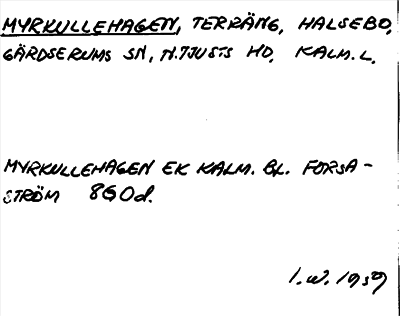 MYRKULLEHAGEN, TERRÄNG, HALSEBO,
GÄRDSERUMS SN, N.TJUSTS HD, KALM.L.
MYRKULLEHAGEN EK KALM. BL. FORSA-
STRÖM 8G0d.
I.W. 1959